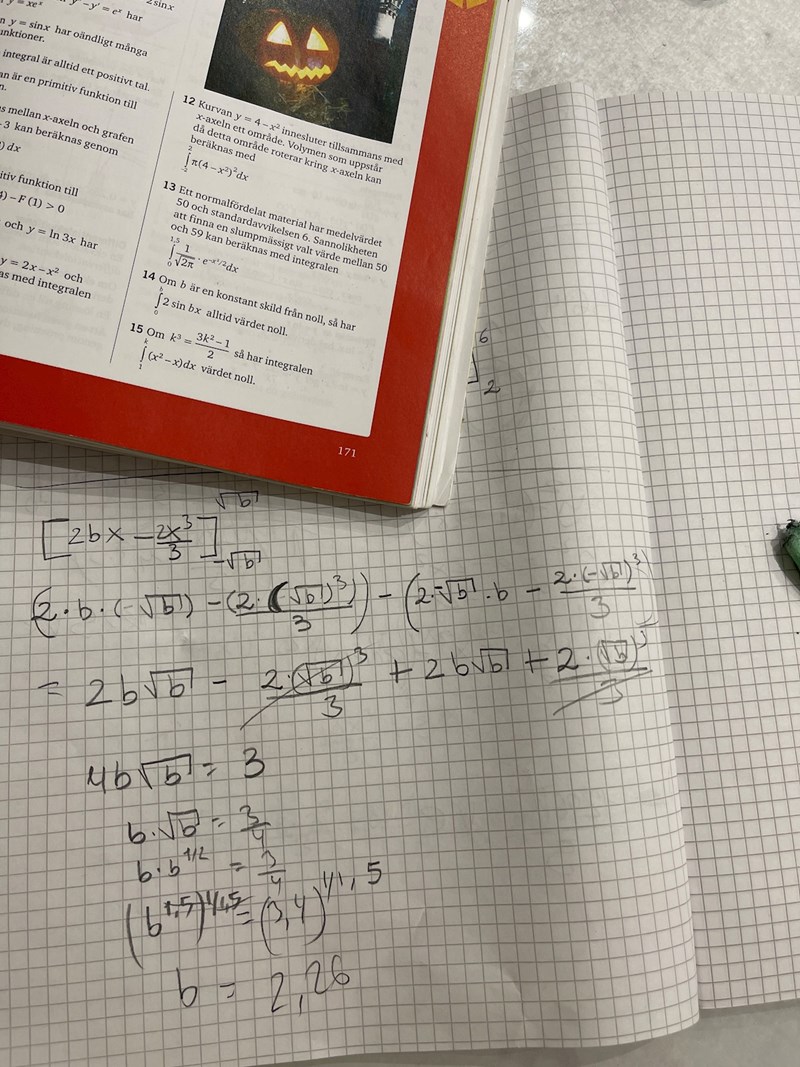 2 sin x
y = xeˣ
y″ − y′ = eˣ har
n y = sin x har oändligt många
unktioner.
integral är alltid ett positivt tal.
an är en primitiv funktion till
n.
s mellan x-axeln och grafen
3 kan beräknas genom
) dx
itiv funktion till
4) − F(1) > 0
och y = ln 3x har
y = 2x − x² och
as med integralen
12 Kurvan y = 4 − x² innesluter tillsammans med
x-axeln ett område. Volymen som uppstår
då detta område roterar kring x-axeln kan
beräknas med
∫₋₂² π(4 − x²)² dx
13 Ett normalfördelat material har medelvärdet
50 och standardavvikelsen 6. Sannolikheten
att finna en slumpmässigt valt värde mellan 50
och 59 kan beräknas med integralen
∫₀^1,5 1/√2π · e^(−x²/2) dx
14 Om b är en konstant skild från noll, så har
∫₀^b 2 sin bx alltid värdet noll.
15 Om k³ = (3k² − 1)/2 så har integralen
∫₁^k (x² − x) dx värdet noll.
171
]₂⁶
[2bx − 2x³/3]_(−√b)^(√b)
(2 · b · (−√b) − (2 · (√b)³)/3) − (2 · −√b · b − 2 · (−√b)³/3
= 2b√b − 2·(√b)³/3 + 2b√b + 2 · (√b)³/3
4b√b = 3
b · √b = 3/4
b · b^1/2 = 3/4
(b^1,5)^1/1,5 = (3,4)^1/1,5
b = 2,26